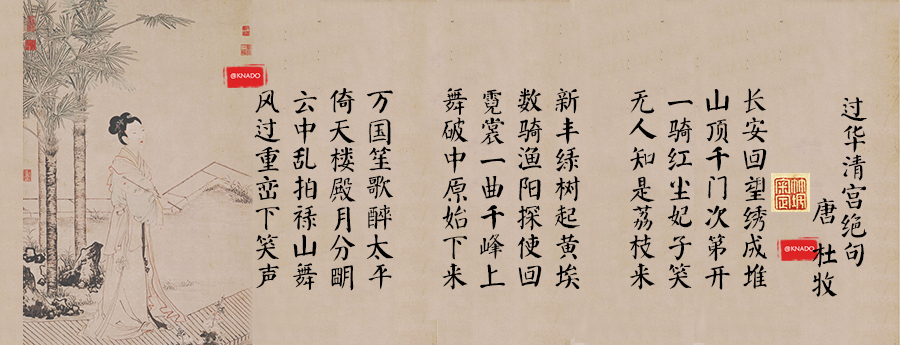 过华清宫绝句
唐 杜牧
@KNADO
长安回望绣成堆
山顶千门次第开
一骑红尘妃子笑
无人知是荔枝来
新丰绿树起黄埃
数骑渔阳探使回
霓裳一曲千峰上
舞破中原始下来
万国笙歌醉太平
倚天楼殿月分明
云中乱拍禄山舞
风过重峦下笑声
@KNADO